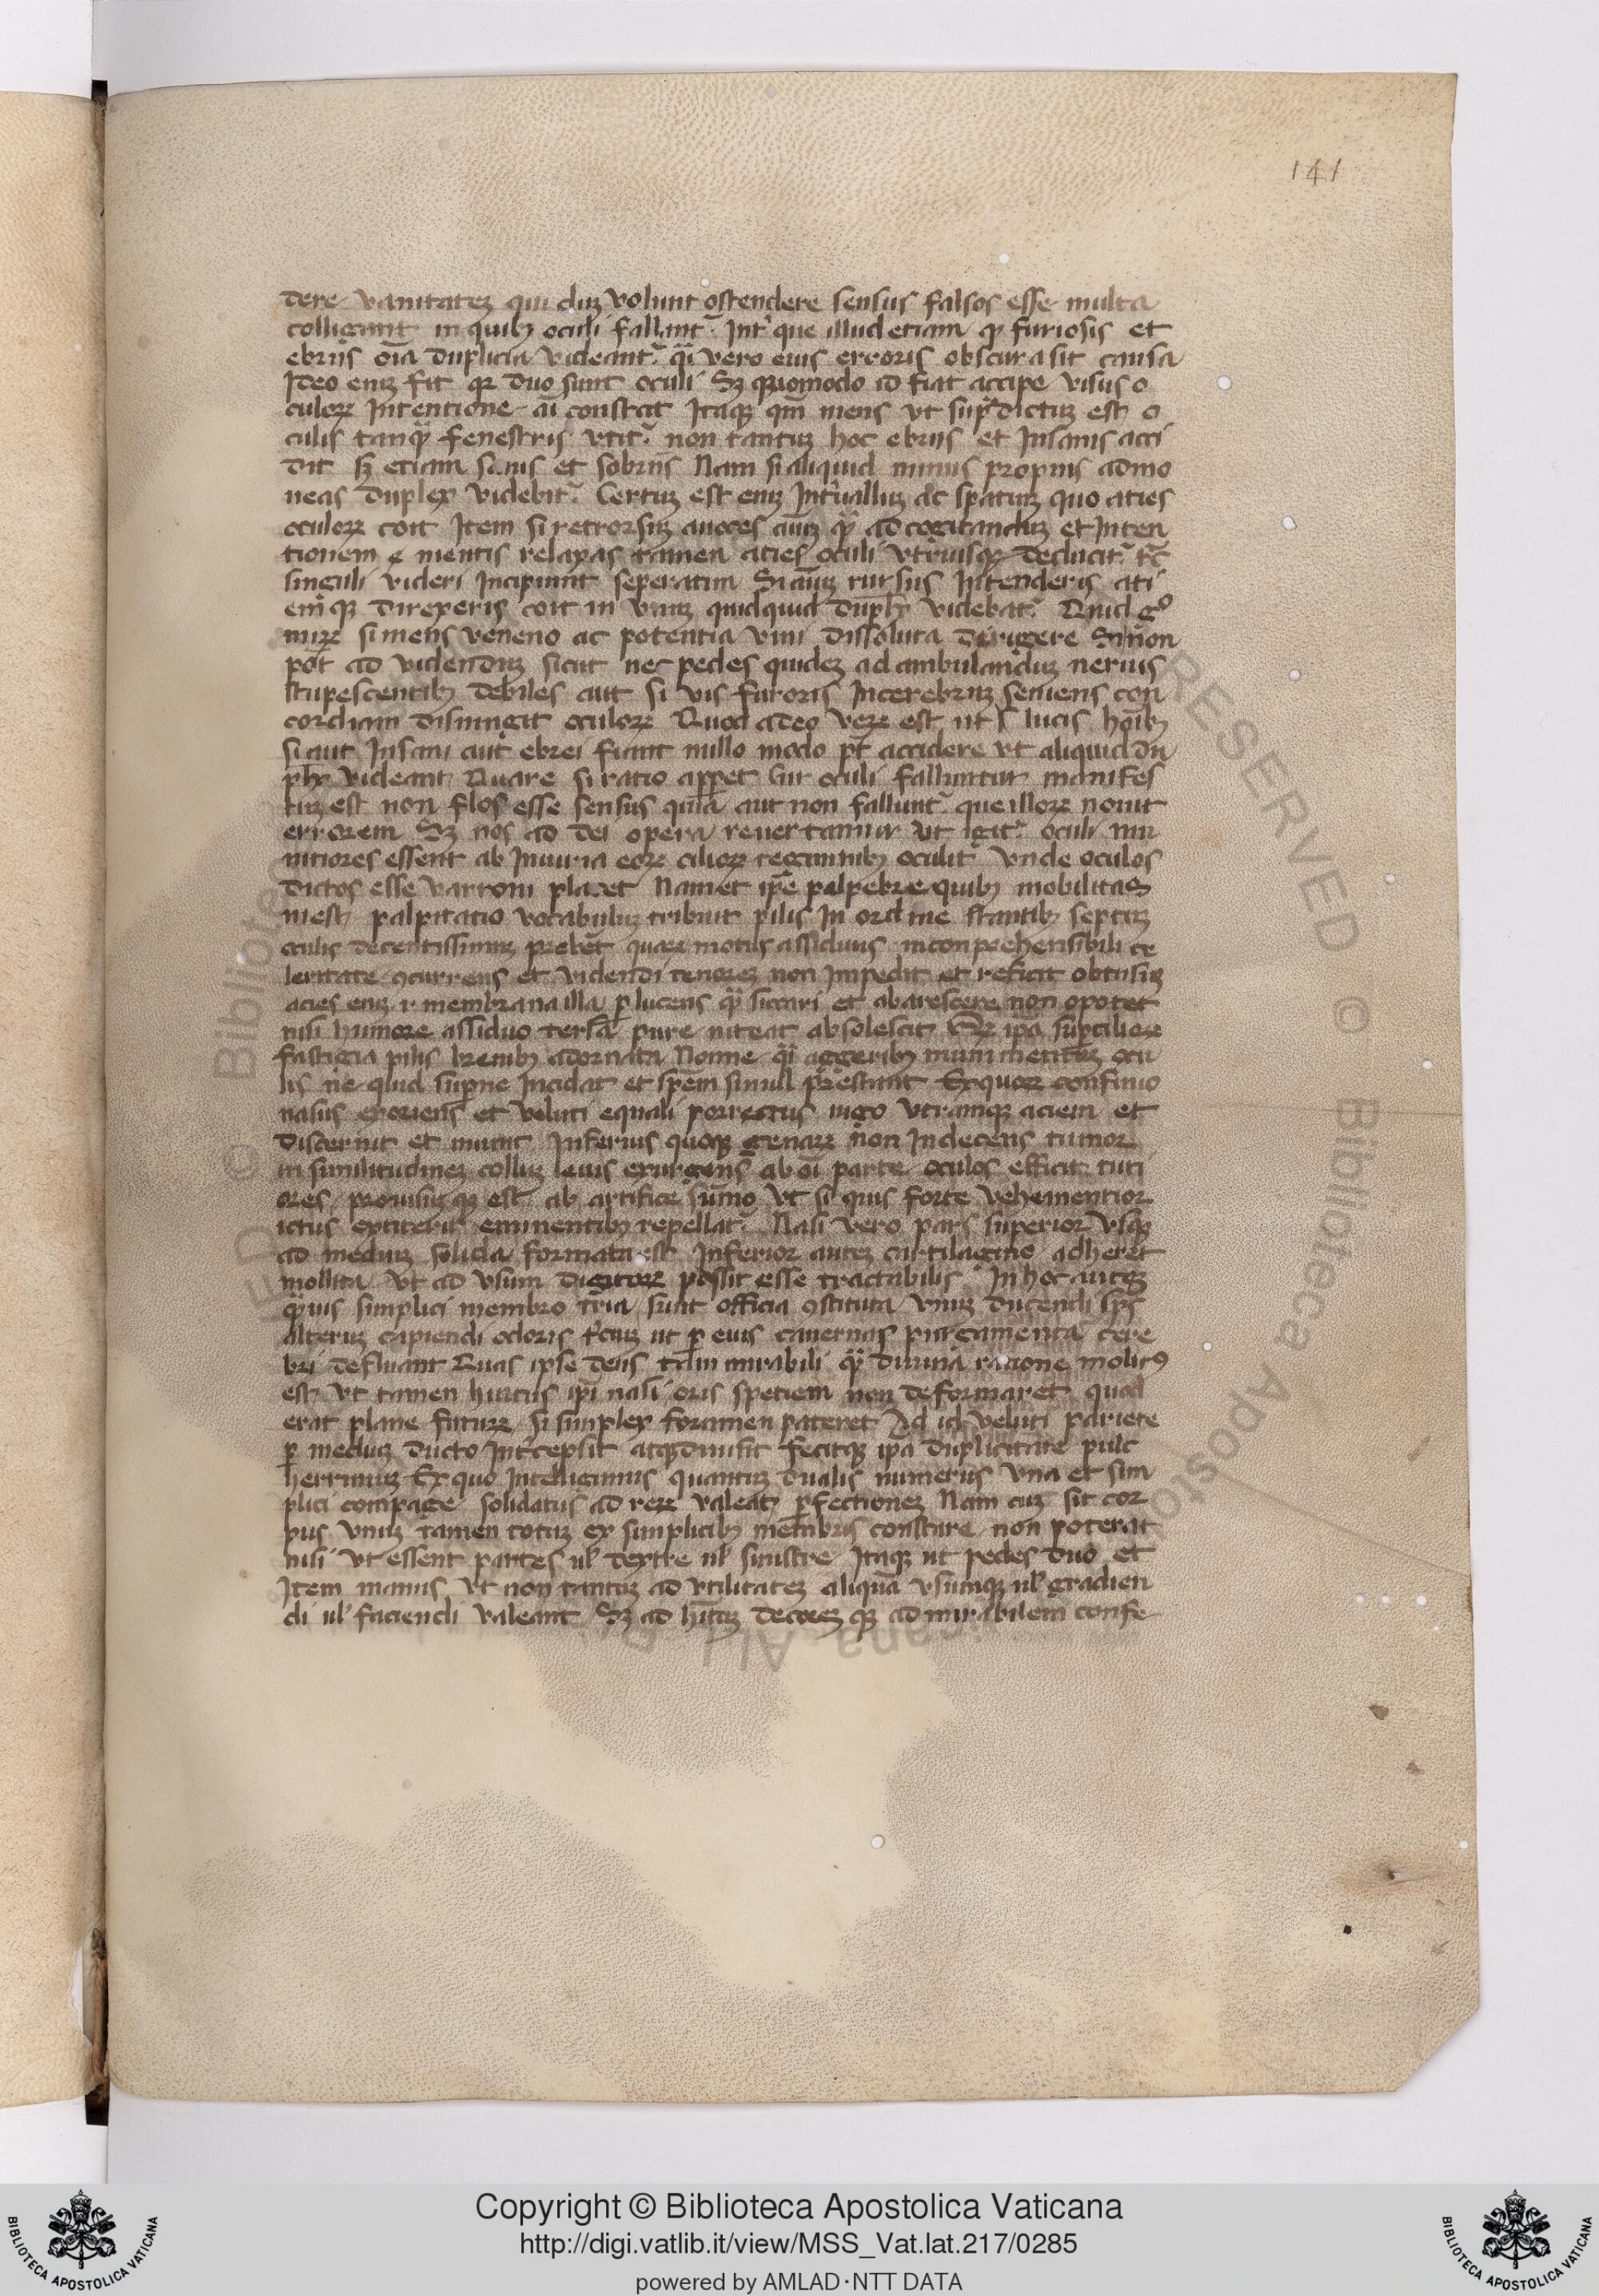 141
dere vanitatez qui duz volunt ostendere sensus falsos esse multa
colligunt in quibꝫ oculi fallunt᷑ Int᷑ que illud etiam ꝙ furiosis et
ebriis oīa duplicia videant᷑ q̄i vero eius erroris obscura sit causa
Ideo enīz fit qꝛ duo sunt oculi Sꝫ quomodo id fiat accipe visus o
culoꝝ Intentione aī constat Itaqꝫ qm̄ mens vt sup̄dictuz est o
culis tanqᷓ fenestris vtit᷑ non tantuz hoc ebriis et Insanis acci
dit sꝫ etiam sanis et sobriis Nam si aliquid nimis propius admo
ueas duplex videbit᷑ Certuz est eniz Int᷑ualluz ac spatiuz quo acies
oculoꝝ coit Item si retrorsuz auoces aīuz qᷓ ad cogitanduz et Inten
tionem mentis relaxas tamen acies oculi vtriusqꝫ deducit᷑ tc̄
singuli videri Incipiunt seperatim Si aīuz rursus Intenderis aci
emqꝫ direxeris coit in vnuz quidquid duplex videbat᷑ Quid gͦ
miꝝ si mens veneno ac potentia vini dissoluta dirigere se non
pōt ad videnduz sicut nec pedes quidez ad ambulanduz neruis
stupescentibꝫ debiles aut si vis furoris Incerebruz seuiens con
cordiam disiungit oculoꝝ Quod adeo veꝝ est ut lucis hoībꝫ
si aut Insani aut ebrei fiant nullo modo pt̄ accidere vt aliquid du
plex videant Quare si ratio appet Cur oculi falluntur manifes
tuz est non flos esse sensus quia aut non fallunt᷑ que illoꝝ nouit
errorem Sꝫ nos ad dei opera reuertamur vt igit᷑ oculi mu
nitiores essent ab Iniuria eoꝝ cilioꝝ tegminibꝫ oculit vnde oculos
dictos esse varroni placet Nam et ip̄e palpebre quibꝫ mobilitas
inest palpitatio vocabuluz tribuit pilis In ordine stantibꝫ septuz
oculis decentissimuz prebēt quaꝝ motus assiduus incomprehensibili ce
leritate ꝯcurrens et videndi tenorez non Impedit et reficit obtusuz
acies eniz membrana illa ꝑlucens qᷓ siccari et abarescere non opotet
nisi humore assiduo tersa pure niteat absolescit Qꝫ ipā sup̄cilioꝝ
fastigia pilis breuibꝫ adornata Nonne qī aggeribꝫ munimentuz ocu
lis ne quid sup̄ne Incidat et spēm simul prestant Exquoꝝ confinio
nasus exoriens et veluti equali porrectus iugo vtramqꝫ aciem et
discernit et munit Inferius quoqꝫ genaꝝ non Indecens tumor
in similitudinez colliuz leuis exurgens ab oī parte oculos efficit tuti
ores prouisuzqꝫ est ab artifice sum̄o vt si quis forte vehementior
ictus extiterit eminentibꝫ repellat᷑ Nasi vero pars superior vsqꝫ
ad mediuz solida formata est Inferior autez cartilagine adheret
mollita vt ad vsum digitoꝝ possit esse tractabilis In hoc autez
qᷓuis simplici membro tria sunt officia ꝯstituta vnuz ducendi sp̄s
alteruz capiendi odoris t᷑ciuz ut ꝑ eius cauernas purgamenta cere
bri defluant Quas ipse deus tam mirabili qᷓ diuina ratione molitꝰ
est vt tamen hiatus ip̄i nasi oris spetiem non deformaret quod
erat plane futuꝝ si simplex foramen pateret Ad id veluti pariete
ꝑ mediuz ducto Int᷑cepsit atqꝫ diuisit fecitqꝫ ipa duplicitate pulc
herrimuz Ex quo Intelligimus quantuz dualis numerus vna et sim
plici compage solidatus ad reꝝ valeat ꝑfectionez Nam cuz sit cor
pus vnuz tamen totuz ex simplicibꝫ membris constare non poterat
nisi vt essent partes ul̓ dextre ul̓ sinistre Itaqꝫ ut pedes duo et
Item manus vt non tantuz ad vtilitatez aliquā vsumqꝫ ul̓ gradien
di ul̓ faciendi valeant Sꝫ ad hītuz decorez qꝫ admirabilem confe
Copyright © Biblioteca Apostolica Vaticana
http://digi.vatlib.it/view/MSS_Vat.lat.217/0285
powered by AMLAD·NTT DATA
BIBLIOTECA APOSTOLICA VATICANA
BIBLIOTECA APOSTOLICA VATICANA